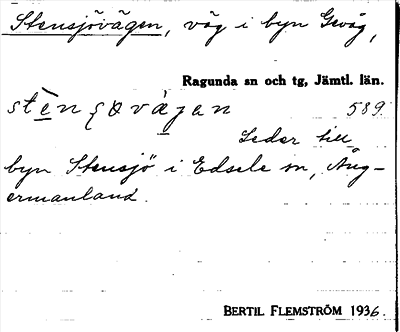 Stensjövägen, väg i byn Gevåg,
Ragunda sn och tg, Jämtl. län.
589.
Leder till
byn Stensjö i Edsele sn, Ång-
ermanland.
BERTIL FLEMSTRÖM 1936.